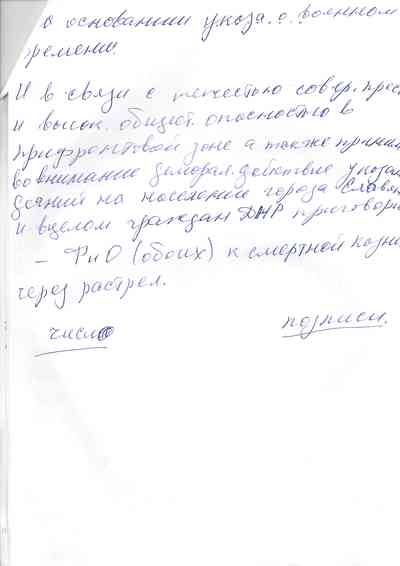 о основании указа о военном
времени.
И в связи с тяжестью совер. прес
и высок. общест. опасностью в
прифронтовой зоне а также приним
во внимание деморал. действие указан
деяний на население города Славян
и вцелом граждан ДНР приговори
– ФиО (обоих) к смертной казни
через растрел.
число
подписи.